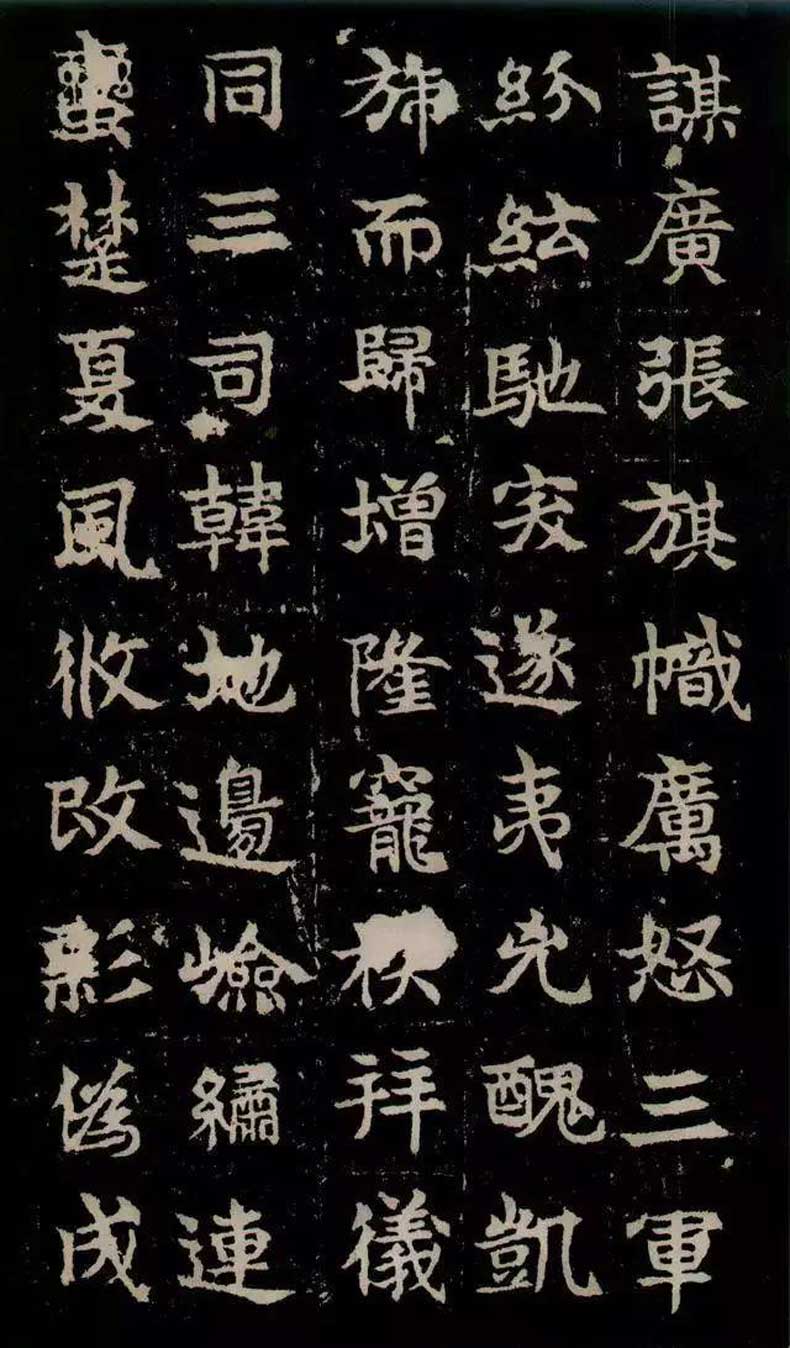 謀廣張旗幟厲怒三軍
紛紜馳突遂夷兇醜凱
旆而歸增隆寵秩拜儀
同三司韓地邊嶮繡連
蠻楚夏風攸改影偽成